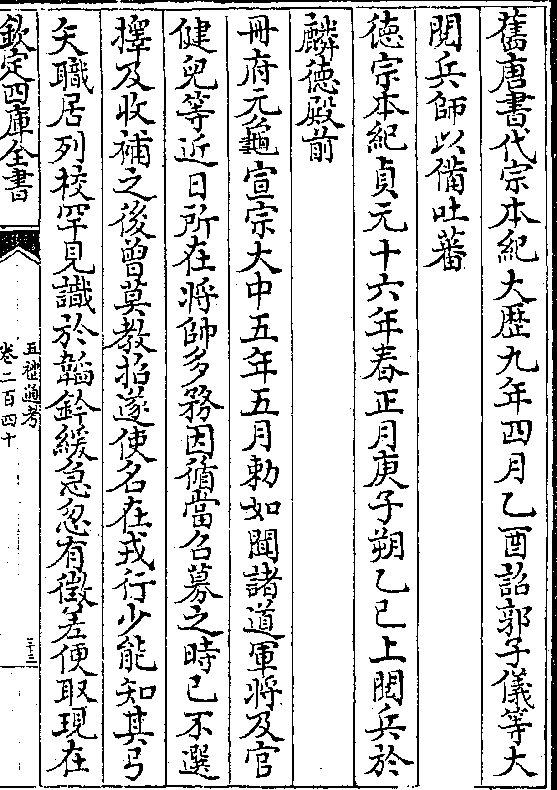 舊唐書代宗本紀大歴九年四月乙酉詔郭子儀等大
閱兵師以備吐蕃
德宗本紀貞元十六年春正月庚子朔乙巳上閱兵於
麟德殿前
冊府元龜宣宗大中五年五月勅如聞諸道軍將及官
健兒等近日所在將帥多務因循當召募之時已不選
擇及收補之後曾莫教招遂使名在戎行少能知其弓
矢職居列校罕見識於韜鈐緩急忽有徵差便取現在
欽定四庫全書
五禮通考
卷二百四十
三十三